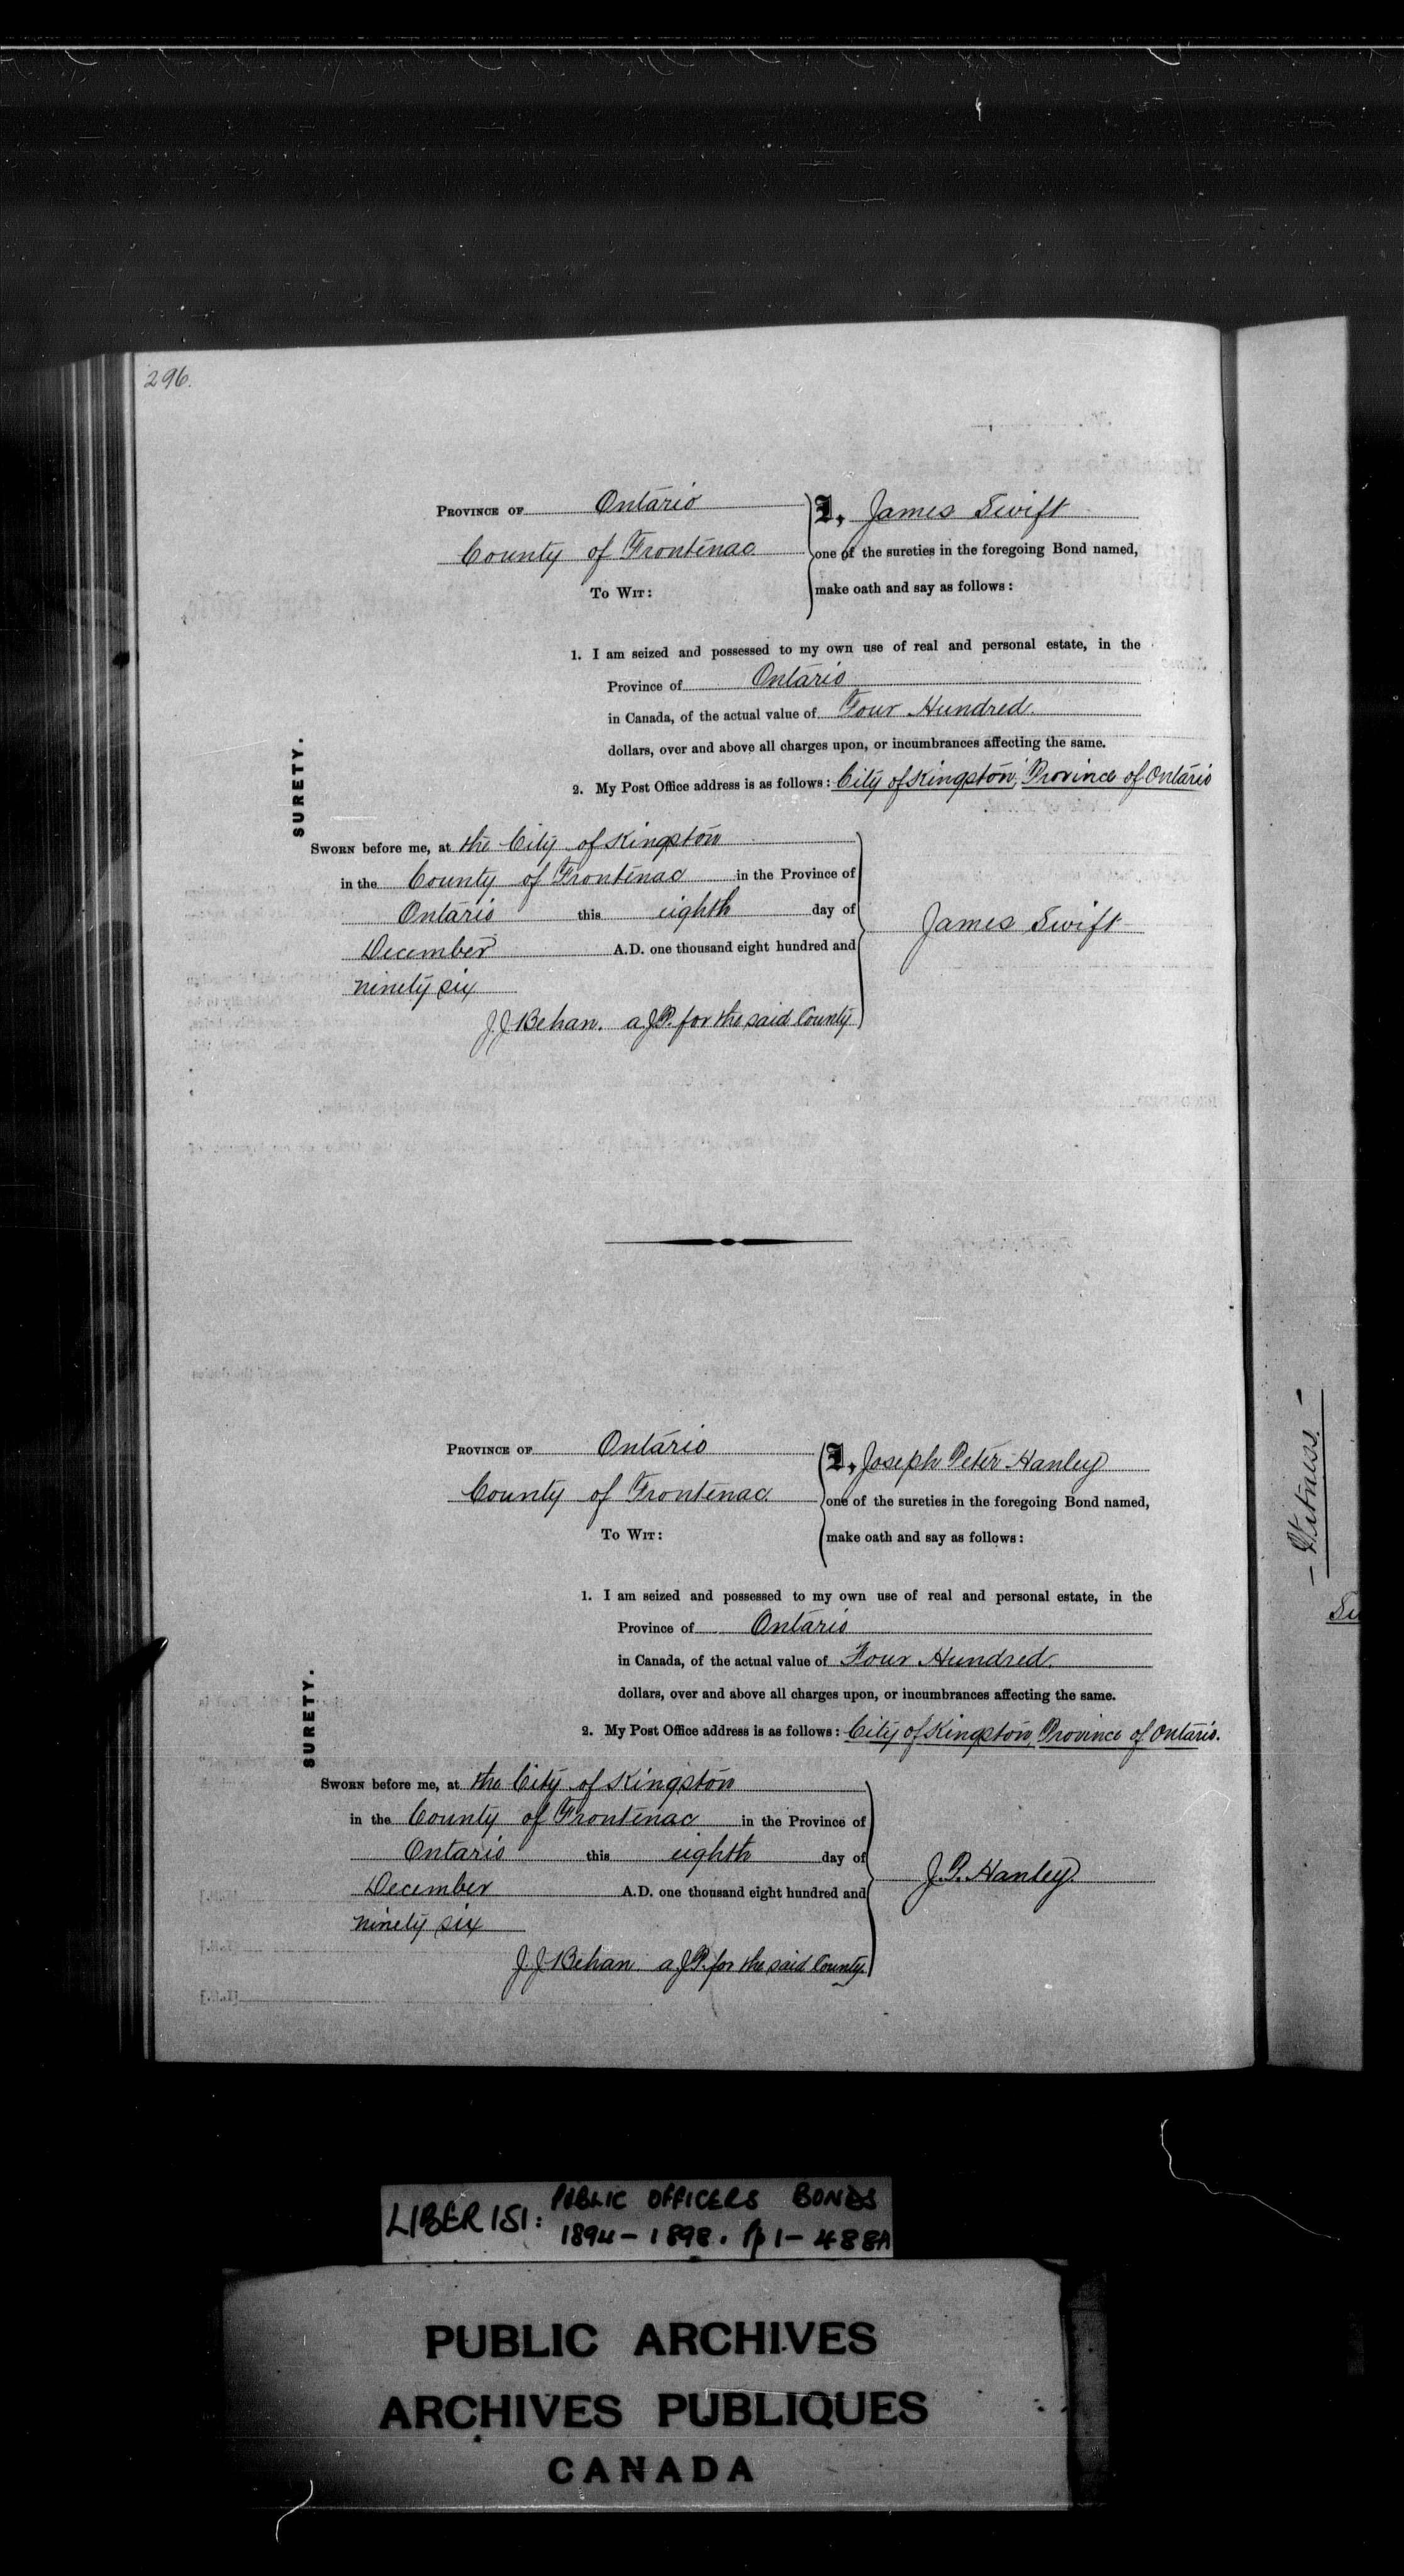 296.
PROVINCE OF Ontario
County of Frontenac
TO WIT:
I, James Swift
one of the sureties in the foregoing Bond named,
make oath and say as follows:
1. I am seized and possessed to my own use of real and personal estate, in the
Province of Ontario
in Canada, of the actual value of Four Hundred
dollars, over and above all charges upon, or incumbrances affecting the same.
2. My Post Office address is as follows: City of Kingston, Province of Ontario
SURETY.
SWORN before me, at the City of Kingston
in the County of Frontenac in the Province of
Ontario this eighth day of
December A.D. one thousand eight hundred and
ninety six
J. J. Behan. a J.P. for the said County
James Swift
PROVINCE OF Ontario
County of Frontenac
TO WIT:
I, Joseph Peter Hanley
one of the sureties in the foregoing Bond named,
make oath and say as follows:
1. I am seized and possessed to my own use of real and personal estate, in the
Province of Ontario
in Canada, of the actual value of Four Hundred.
dollars, over and above all charges upon, or incumbrances affecting the same.
2. My Post Office address is as follows: City of Kingston, Province of Ontario.
SURETY.
SWORN before me, at the City of Kingston
in the County of Frontenac in the Province of
Ontario this eighth day of
December A.D. one thousand eight hundred and
ninety six
J. J. Behan a J.P. for the said County.
J. P. Hanley.
- Witness. -
LIBER 151: PUBLIC OFFICERS BONDS
1894-1898. pp 1-488A
PUBLIC ARCHIVES
ARCHIVES PUBLIQUES
CANADA